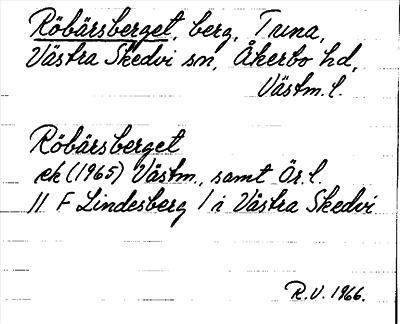 Röbärsberget, berg, Tuna,
Västra Skedvi sn, Åkerbo hd,
Västm. l.
Röbärsberget
ek (1965) Västm., samt Ör. l.
11 F Lindesberg / i Västra Skedvi
R.V. 1966.